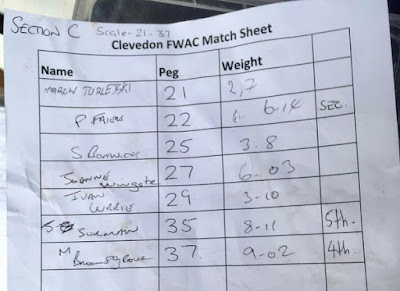 SECTION C Scale-21-37
Clevedon FWAC Match Sheet
Name Peg Weight
21 2,7
P. FRIEND 22 6-14 SEC.
25 3.8
JOANNE Wingate 27 6.03
IVAN CURRIE 29 3-10
SURMAN 35 8-11 5th.
M Bromsgrove 37. 9-02 4th.